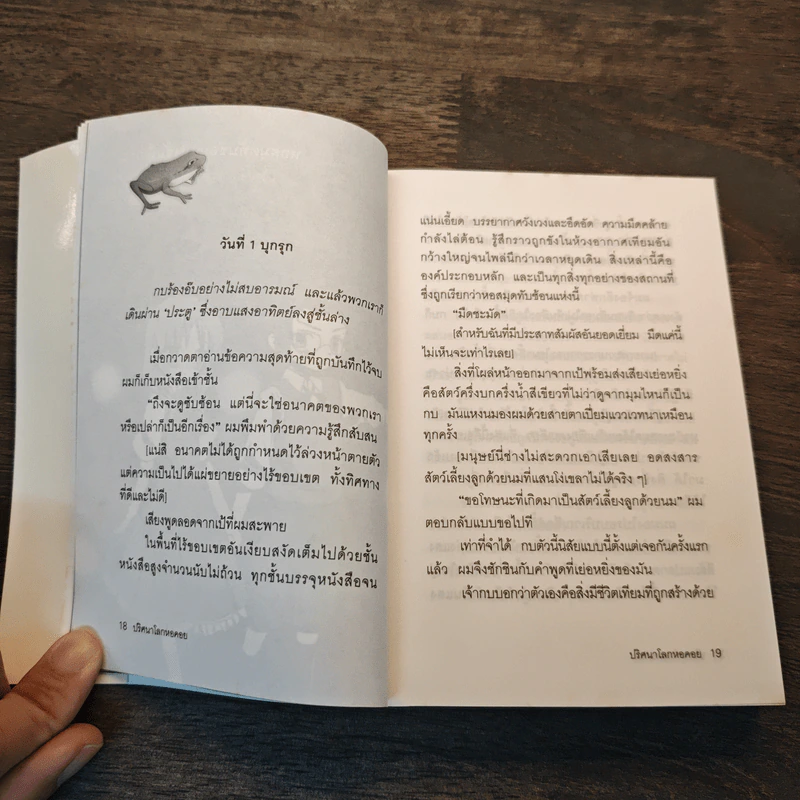 วันที่ 1 บุกรุก
กบร้องอ๊บอย่างไม่สบอารมณ์ และแล้วพวกเราก็
เดินผ่าน ‘ประตู’ ซึ่งอาบแสงอาทิตย์ลงสู่ชั้นล่าง
เมื่อกวาดตาอ่านข้อความสุดท้ายที่ถูกบันทึกไว้จบ
ผมก็เก็บหนังสือเข้าชั้น
“ถึงจะดูซับซ้อน แต่นี่จะใช่อนาคตของพวกเรา
หรือเปล่าก็เป็นอีกเรื่อง” ผมพึมพำด้วยความรู้สึกสับสน
[แน่สิ อนาคตไม่ได้ถูกกำหนดไว้ล่วงหน้าตายตัว
แต่ความเป็นไปได้แผ่ขยายอย่างไร้ขอบเขต ทั้งทิศทาง
ที่ดีและไม่ดี]
เสียงพูดลอดจากเป้ที่ผมสะพาย
ในพื้นที่ไร้ขอบเขตอันเงียบสงัดเต็มไปด้วยชั้น
หนังสือสูงจำนวนนับไม่ถ้วน ทุกชั้นบรรจุหนังสือจน
18 ปริศนาโลกหอคอย
แน่นเอี้ยด บรรยากาศวังเวงและอึดอัด ความมืดคล้าย
กำลังไล่ต้อน รู้สึกราวถูกขังในห้วงอากาศเทียมอัน
กว้างใหญ่จนไพล่นึกว่าเวลาหยุดเดิน สิ่งเหล่านี้คือ
องค์ประกอบหลัก และเป็นทุกสิ่งทุกอย่างของสถานที่
ซึ่งถูกเรียกว่าหอสมุดทับซ้อนแห่งนี้
“มืดชะมัด”
[สำหรับฉันที่มีประสาทสัมผัสอันยอดเยี่ยม มืดแค่นี้
ไม่เห็นจะเท่าไรเลย]
สิ่งที่โผล่หน้าออกมาจากเป้พร้อมส่งเสียงเย่อหยิ่ง
คือสัตว์ครึ่งบกครึ่งน้ำสีเขียวที่ไม่ว่าดูจากมุมไหนก็เป็น
กบ มันแหงนมองผมด้วยสายตาเปี่ยมแววเวทนาเหมือน
ทุกครั้ง
[มนุษย์นี่ช่างไม่สะดวกเอาเสียเลย อดสงสาร
สัตว์เลี้ยงลูกด้วยนมที่แสนโง่เขลาไม่ได้จริง ๆ]
“ขอโทษนะที่เกิดมาเป็นสัตว์เลี้ยงลูกด้วยนม” ผม
ตอบกลับแบบขอไปที
เท่าที่จำได้ กบตัวนี้นิสัยแบบนี้ตั้งแต่เจอกันครั้งแรก
แล้ว ผมจึงชักชินกับคำพูดที่เย่อหยิ่งของมัน
เจ้ากบบอกว่าตัวเองคือสิ่งมีชีวิตเทียมที่ถูกสร้างด้วย
ปริศนาโลกหอคอย 19